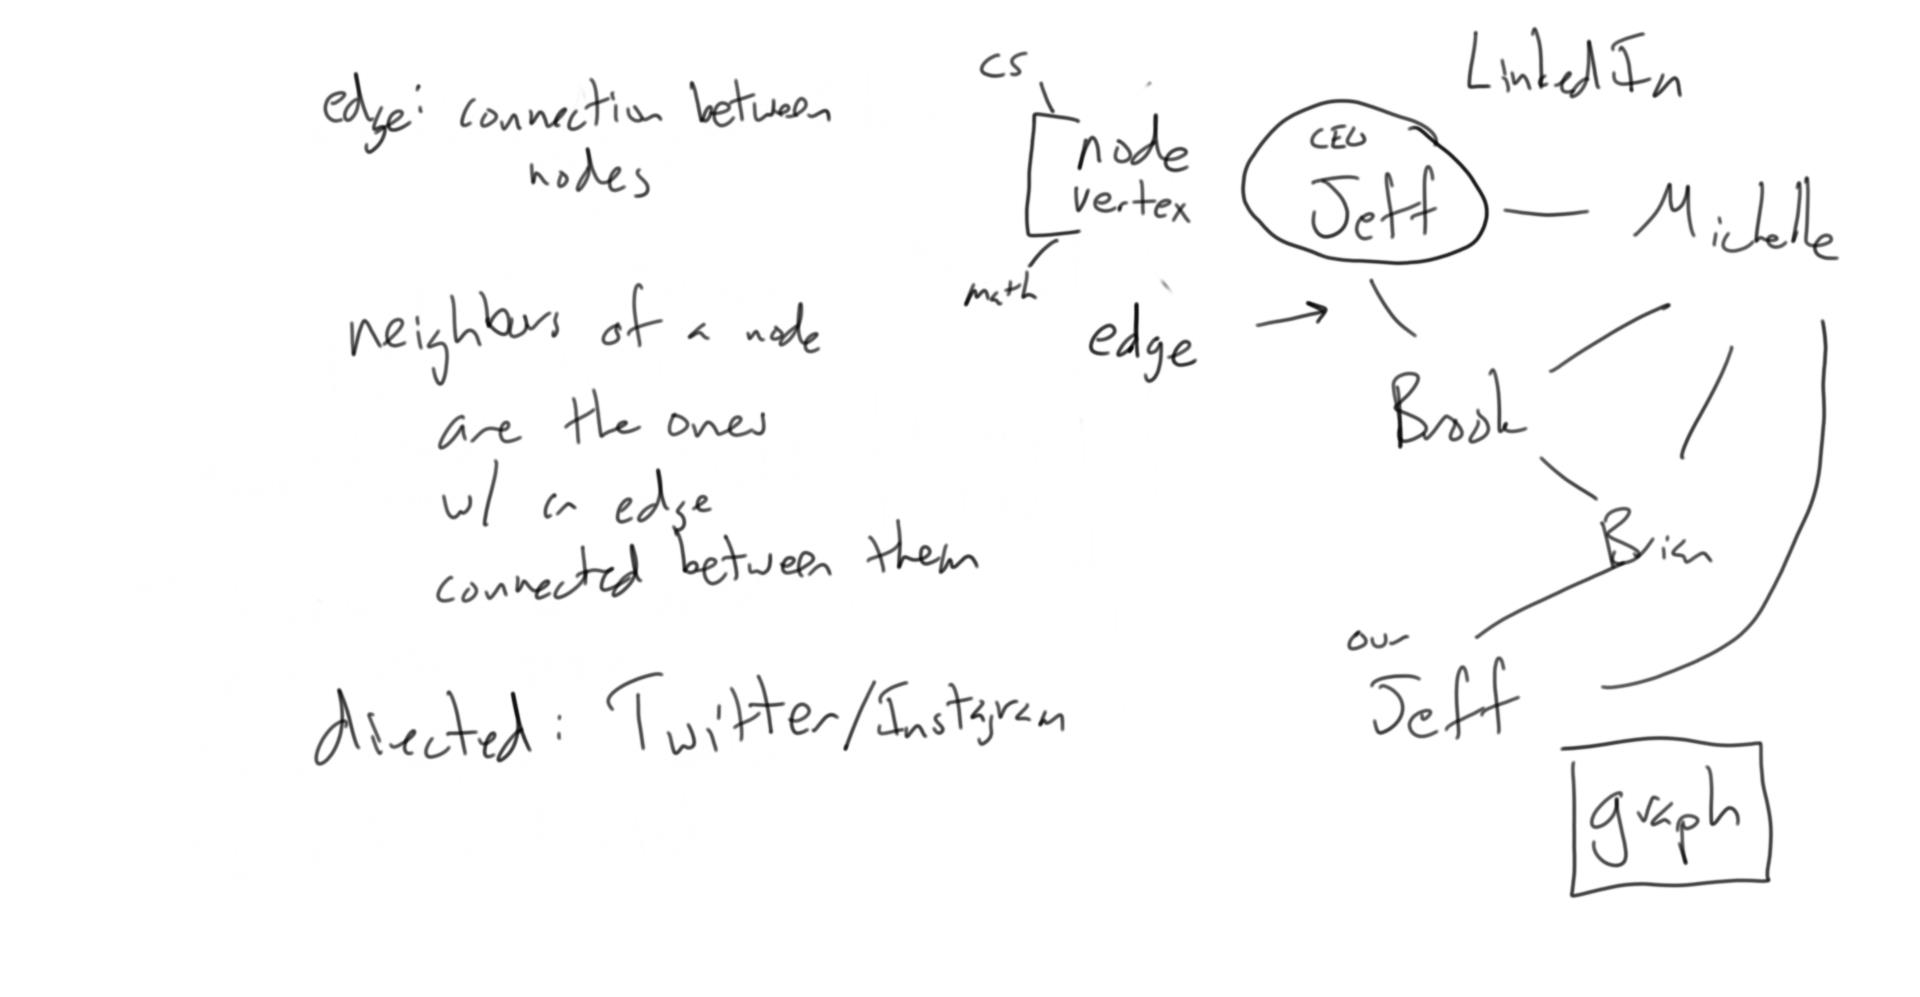 edge: connection between
nodes
neighbors of a node
are the ones
w/ an edge
connected between them
directed: Twitter/Instagram
CS
node
vertex
math
edge
LinkedIn
CEO
Jeff
Michelle
Brook
Brian
our
Jeff
graph